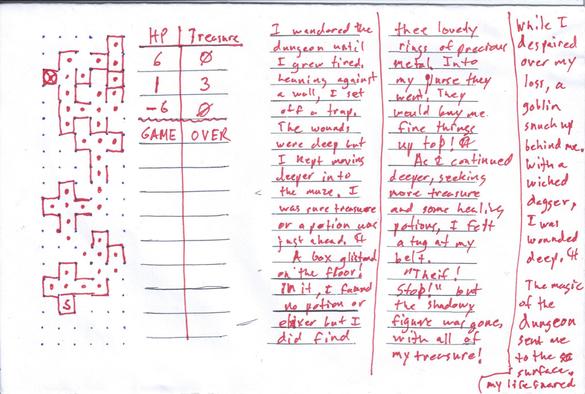 HP Treasure
6 0
1 3
-6 0
GAME OVER
S
I wandered the
dungeon until
I grew tired.
Leaning against
a wall, I set
off a trap.
The wounds
were deep but
I kept moving
deeper into
the maze. I
was sure treasure
or a potion was
just ahead.
A box glistend
on the floor!
In it, I found
no potion or
elixer but I
did find
thee lovely
rings of precious
metal. Into
my purse they
went. They
would buy me
fine things
up top!
As I continued
deeper, seeking
more treasure
and some healing
potions, I felt
a tug at my
belt.
"Theif!
Stop!" but
the shadowy
figure was gone,
with all of
my treasure!
While I
despaired
over my
loss, a
goblin
snuck up
behind me.
With a
wicked
dagger,
I was
wounded
deep.
The magic
of the
dungeon
sent me
to the
surface.
my life spared